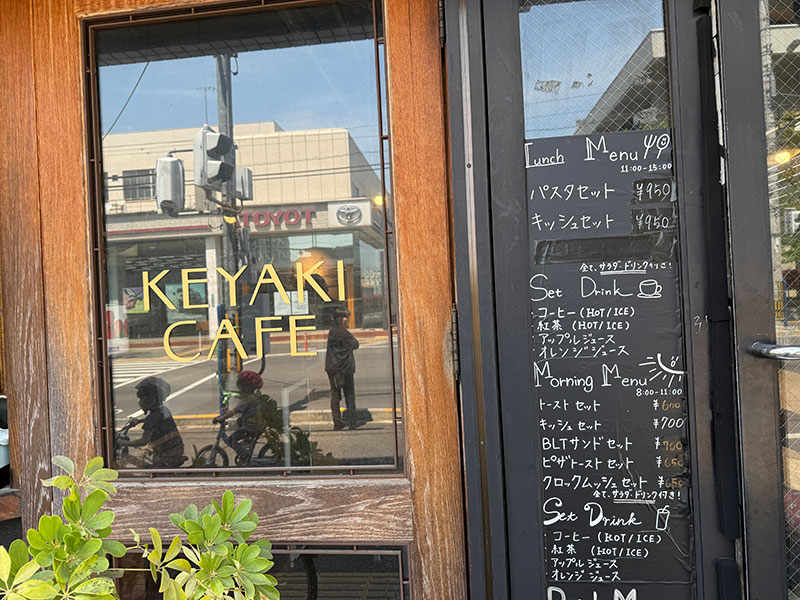 KEYAKI
CAFE
TOYOT
Lunch Menu
11:00-15:00
パスタセット ¥950
キッシュセット ¥950
全て、サラダ・ドリンク付き!
Set Drink
・コーヒー (HOT/ICE)
・紅茶 (HOT/ICE)
・アップルジュース
・オレンジジュース
Morning Menu
8:00-11:00
トーストセット ¥600
キッシュセット ¥700
BLTサンドセット ¥700
ピザトーストセット ¥650
クロックムッシュセット ¥650
全て、サラダ・ドリンク付き!
Set Drink
・コーヒー (HOT/ICE)
・紅茶 (HOT/ICE)
・アップルジュース
・オレンジジュース